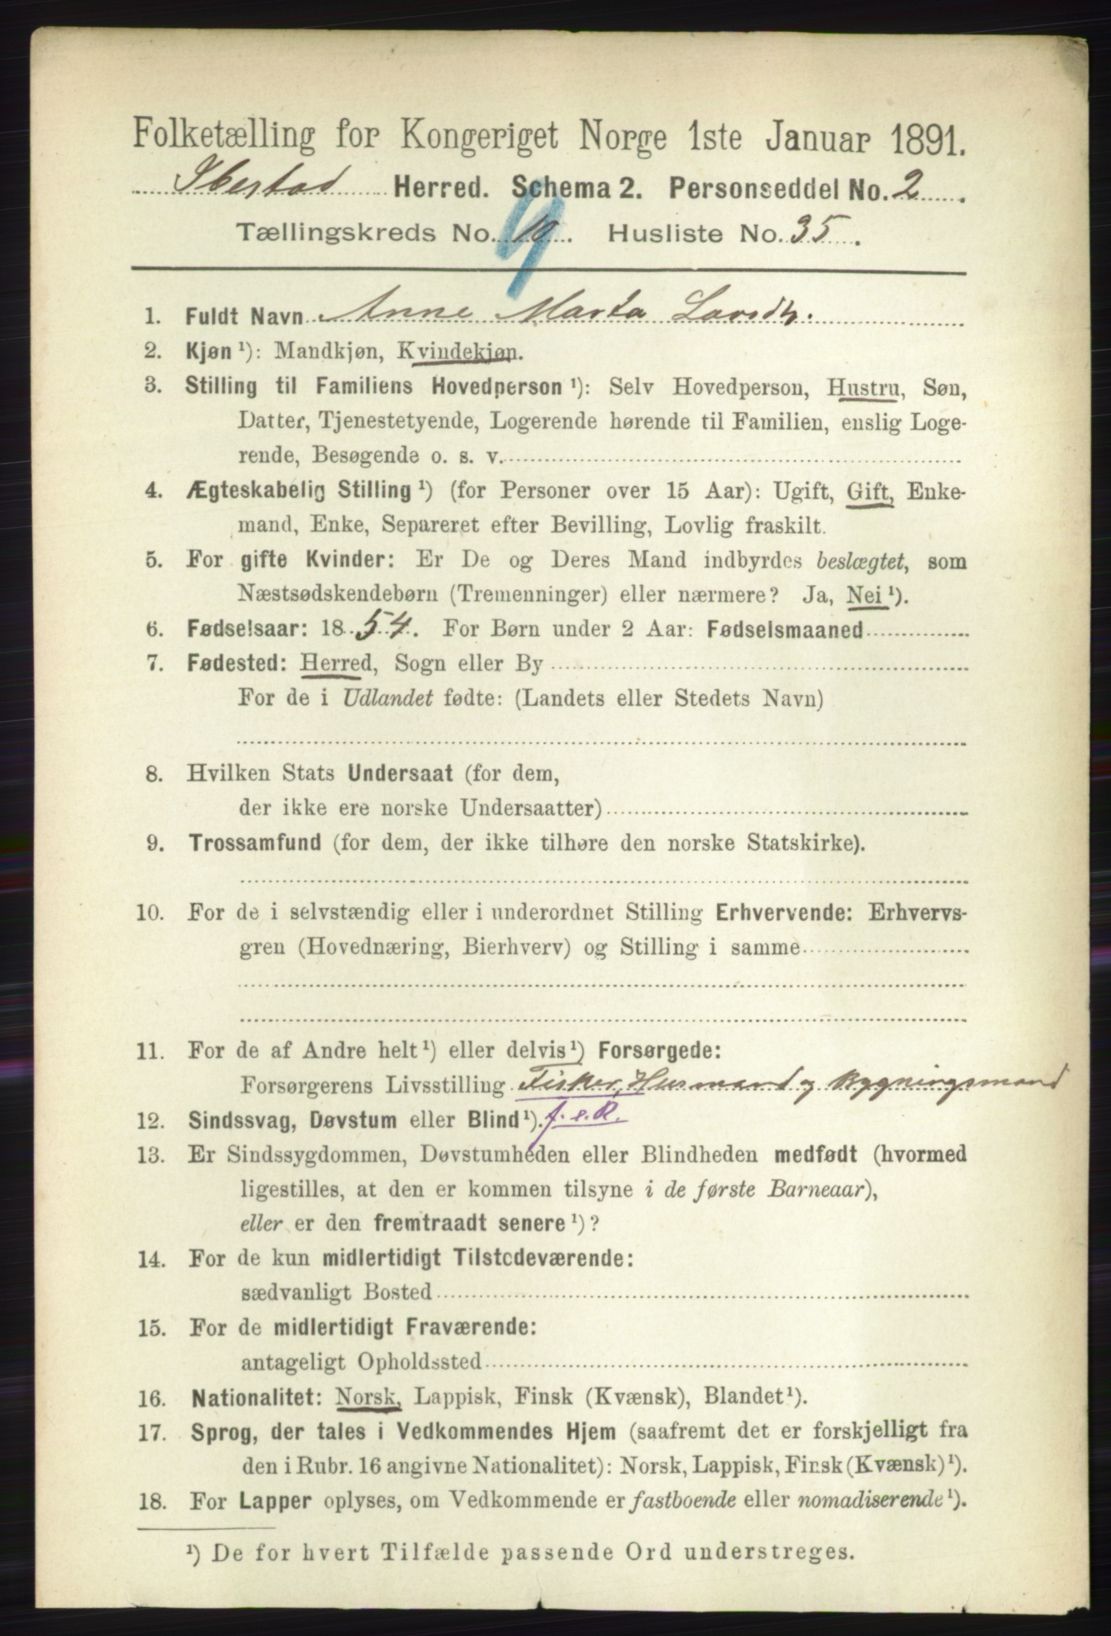 Folketælling for Kongeriget Norge 1ste Januar 1891.
Ibestad Herred. Schema 2. Personseddel No. 2.
Tællingskreds No. 10. Husliste No. 35.
9
1. Fuldt Navn Anne Marta Larsdtr.
2. Kjøn ¹): Mandkjøn, Kvindekjøn.
3. Stilling til Familiens Hovedperson ¹): Selv Hovedperson, Hustru, Søn,
Datter, Tjenestetyende, Logerende hørende til Familien, enslig Loge-
rende, Besøgende o. s. v.
4. Ægteskabelig Stilling ¹) (for Personer over 15 Aar): Ugift, Gift, Enke-
mand, Enke, Separeret efter Bevilling, Lovlig fraskilt.
5. For gifte Kvinder: Er De og Deres Mand indbyrdes beslægtet, som
Næstsødskendebørn (Tremenninger) eller nærmere? Ja, Nei ¹).
6. Fødselsaar: 1854. For Børn under 2 Aar: Fødselsmaaned
7. Fødested: Herred, Sogn eller By
For de i Udlandet fødte: (Landets eller Stedets Navn)
8. Hvilken Stats Undersaat (for dem,
der ikke ere norske Undersaatter)
9. Trossamfund (for dem, der ikke tilhøre den norske Statskirke).
10. For de i selvstændig eller i underordnet Stilling Erhvervende: Erhvervs-
gren (Hovednæring, Bierhverv) og Stilling i samme
11. For de af Andre helt ¹) eller delvis ¹) Forsørgede:
Forsørgerens Livsstilling Fisker, Husmand og Bygningsmand
12. Sindssvag, Døvstum eller Blind ¹). f. s. R.
13. Er Sindssygdommen, Døvstumheden eller Blindheden medfødt (hvormed
ligestilles, at den er kommen tilsyne i de første Barneaar),
eller er den fremtraadt senere ¹)?
14. For de kun midlertidigt Tilstedeværende:
sædvanligt Bosted
15. For de midlertidigt Fraværende:
antageligt Opholdssted
16. Nationalitet: Norsk, Lappisk, Finsk (Kvænsk), Blandet ¹).
17. Sprog, der tales i Vedkommendes Hjem (saafremt det er forskjelligt fra
den i Rubr. 16 angivne Nationalitet): Norsk, Lappisk, Finsk (Kvænsk) ¹).
18. For Lapper oplyses, om Vedkommende er fastboende eller nomadiserende ¹).
¹) De for hvert Tilfælde passende Ord understreges.